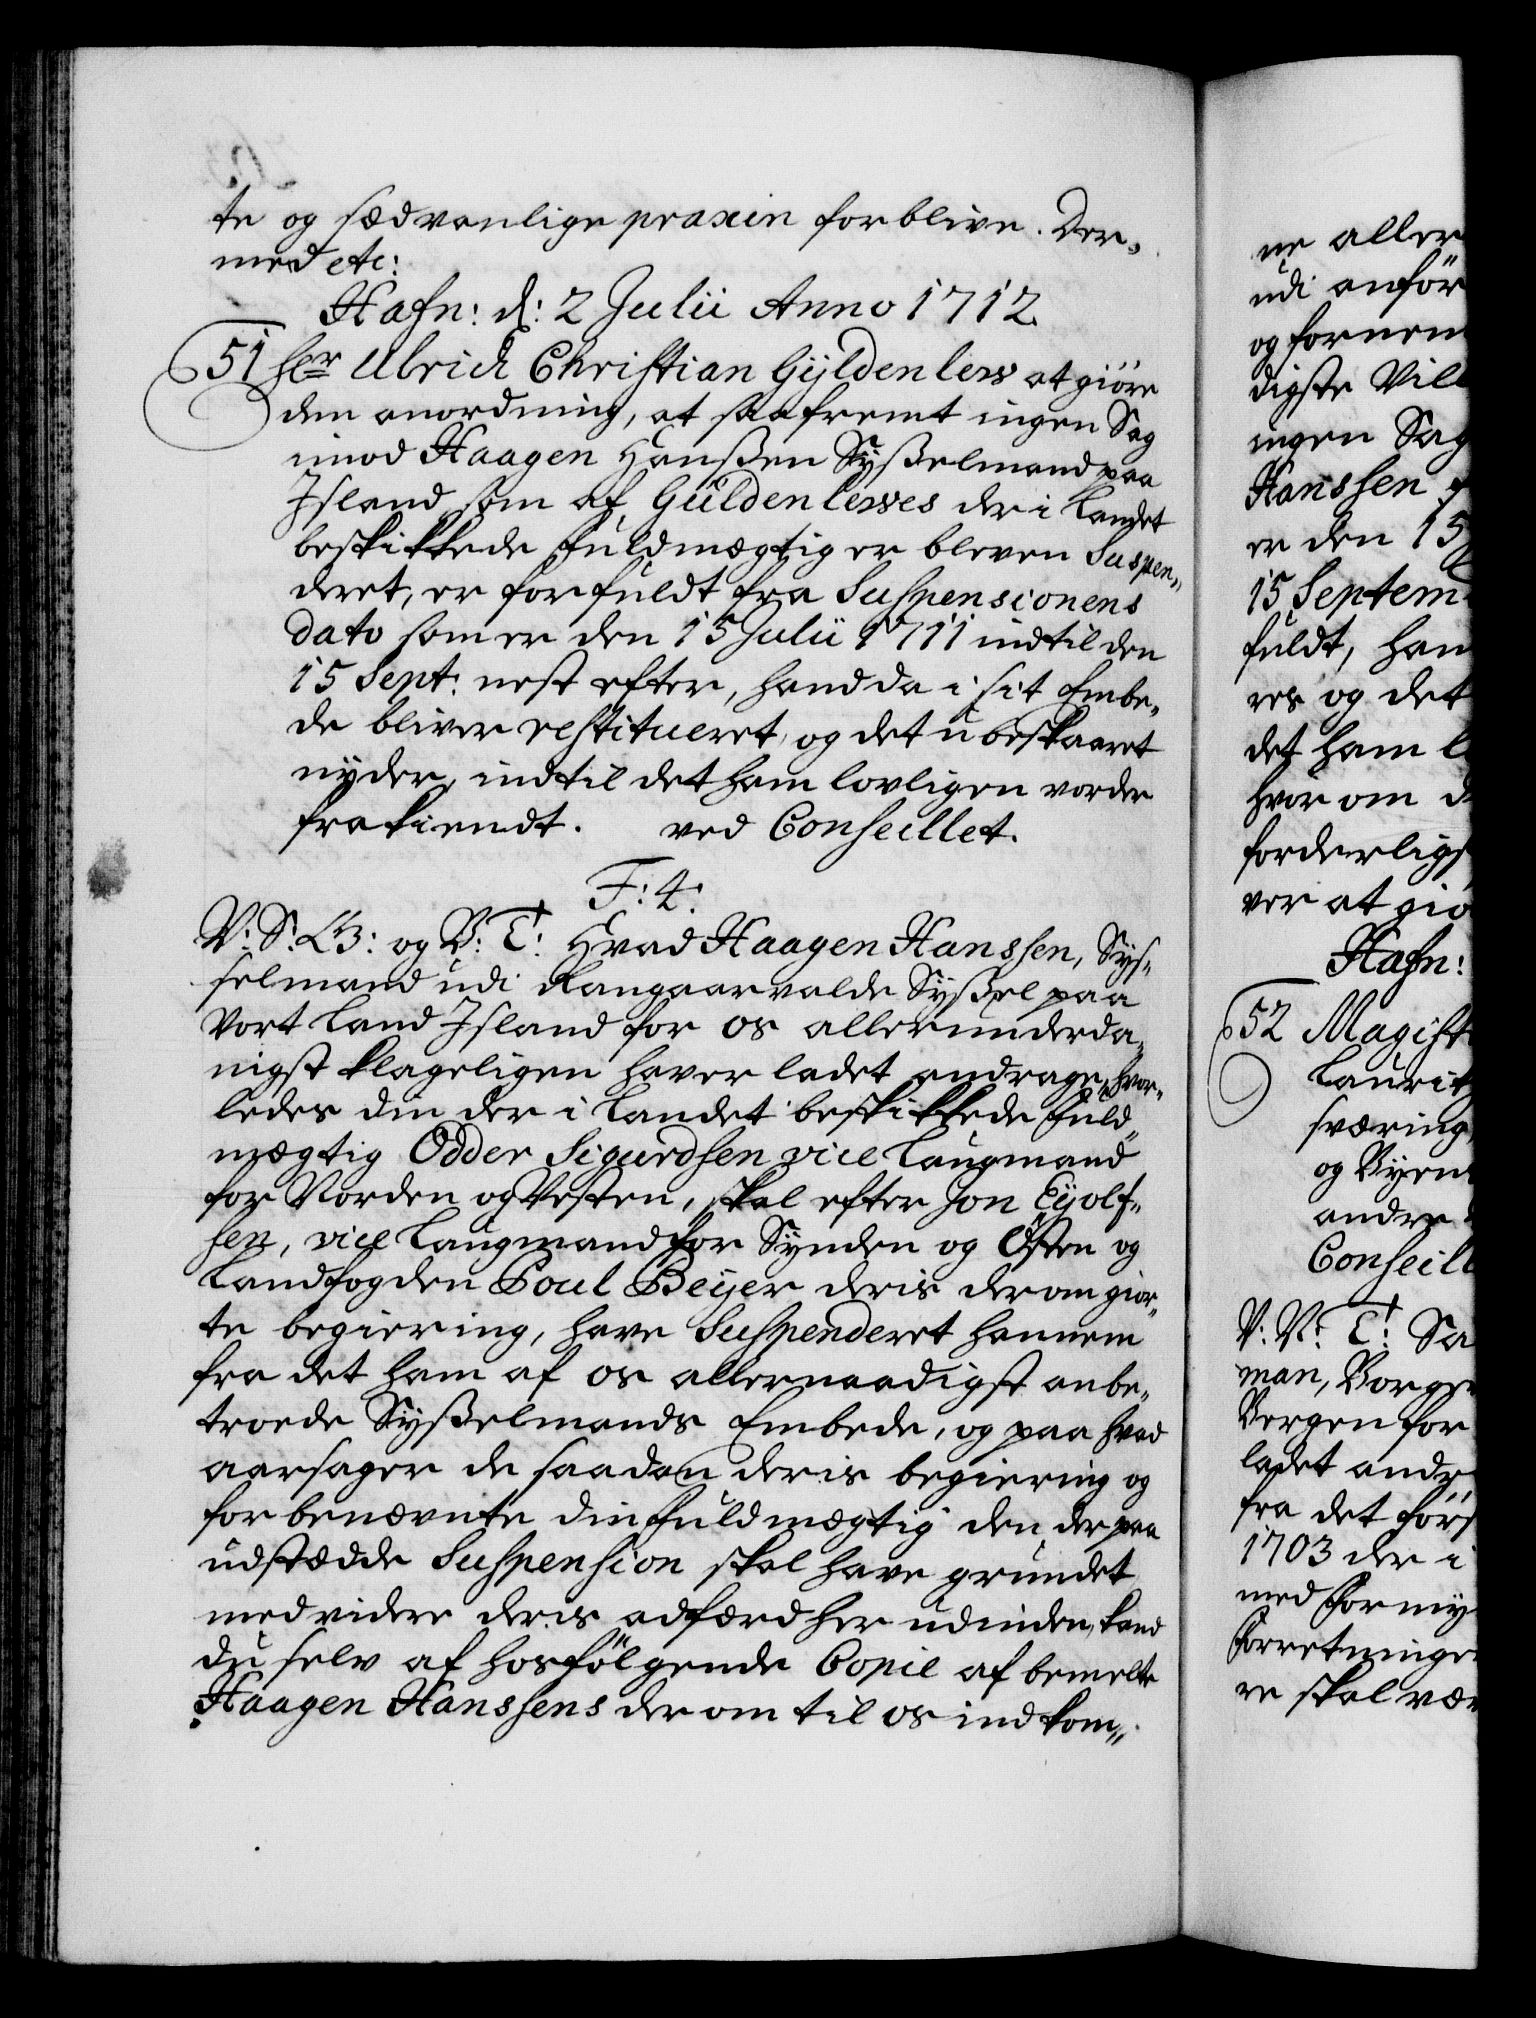 te og sædvanlige praxin forblive. Der„
med etc:
Hafn: d: 2 Julii Anno 1712.
51 hr Ulrich Christian Gÿldenlew at giöre
den anordning, at saafremt ingen Sag
imod Haagen Hanßen Sÿßelmand paa
Island som af Guldenlewes der i Landet
beskikkede Fuldmægtig er bleven Suspen„
deret, er forfuldt fra Suspensionens
dato som er den 15 Julii 1711 indtil den
15 Sept: nest efter, hand da i sit Embe„
de bliver restitueret, og det ubeskaaret
nÿder, indtil det ham lovligen vorder
frakiendt. ved Conseillet.
F: 4.
V: S: G: og V: T: Hvad Haagen Hanssen, Sys„
selmand udi Rangaarvalde Sÿßel paa
Vort Land Island for os allerunderda„
nigst klageligen haver ladet andrage, hvor„
ledes din der i Landet beskikkede Fuld„
mægtig Odder Sigurdsen vice Laugmand
for Norden og Vesten, skal efter Jon Eÿolf„
sen, vice Laugmand for Synden og Östen og
Landfogden Poul Beÿer deris derom gior„
te begiering, have Suspenderet hannem
fra det ham af os allernaadigst anbe„
troede Sÿßelmands Embede, og paa hvad
aarsager de saadan deris begiering og
forbenævnte din fuldmægtig den der paa
udstædde Suspension skal have grundet
med videre deris adfærd her udinden, kand
du selv af hosfölgende Copie af bemelte
Haagen Hanssens derom til os indkom„
ne aller
udi anför
og fornem
digste Vill
ingen Sag
Hanssen
er den 15
15 Septem
fuldt, han
res og det
det ham l
hvor om d
forderligs
ver at giö
Hafn:
52 Magist
Laurit
sværing
og Byen
andre
Conseill
V: V: T: Sa
man, Borge
Bergen for
ladet andr
fra det förs
1703 der i
med Formÿ
Forretninge
re skal vær